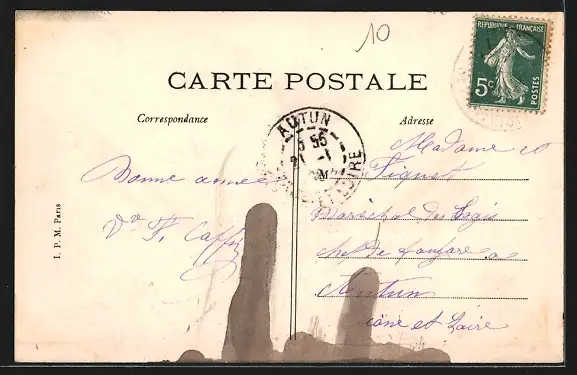 10
REPUBLIQUE FRANÇAISE
5c
POSTES
CARTE POSTALE
Correspondance
Adresse
AUTUN
5 55
21 - 1
LOIRE
Bonne année
Vve
I. P. M. Paris
Madame et
Maréchal des logis
chef de fanfare a
Autun
Saône et Loire